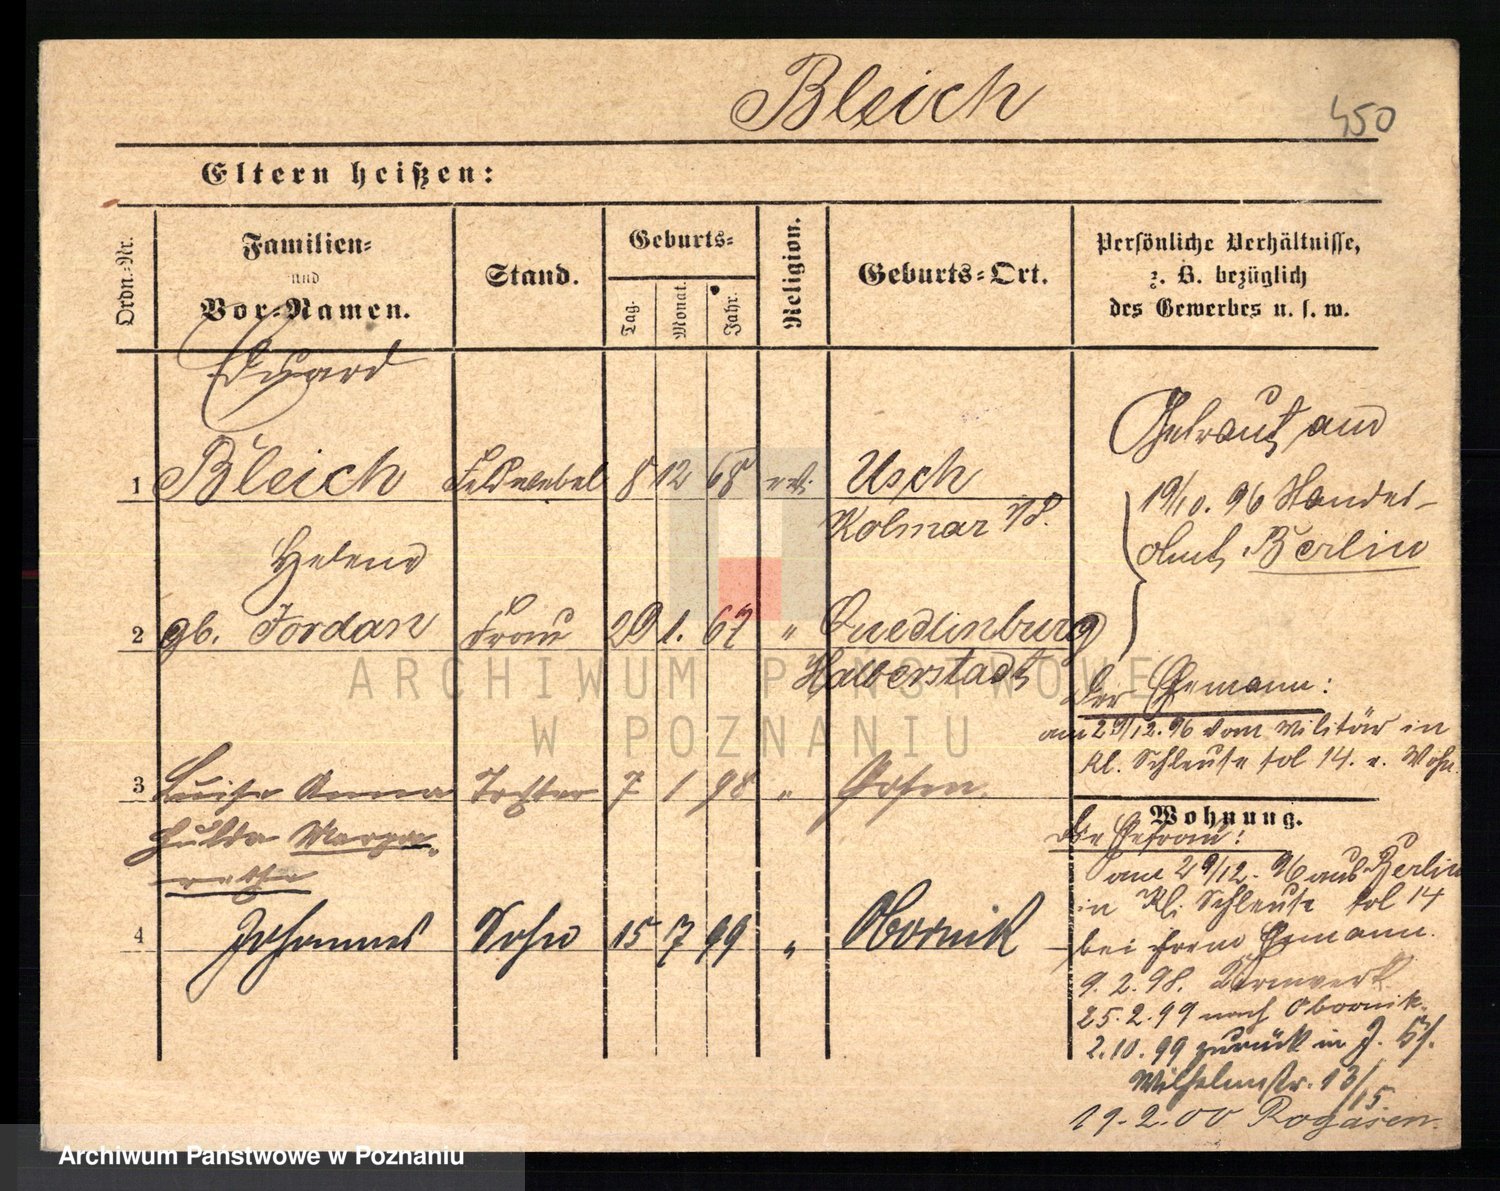 Bleich
450
Eltern heißen:
Ordn.-Nr.
Familien-
und
Vor-Namen.
Stand.
Geburts-
Tag.
Monat.
Jahr.
Religion.
Geburts-Ort.
Persönliche Verhältnisse,
z. B. bezüglich
des Gewerbes u. s. w.
Eduard
1 Bleich Feldwebel 8 12 68 ev. Usch
Kolmar i/P.
Getraut am
19/10. 96 Standes-
amt Berlin
Helene
2 gb. Jordan Frau 29 1. 67 " Quedlinburg
Halberstadt
Der Ehemann:
am 29/12. 96 vom Militär in
Kl. Schleuse 14. Wohn.
3 Luise Anna Tochter 7 1 98 " Posen.
Hulda Marga-
rethe
4 Johannes Sohn 15 7 99 " Obornik
Wohnung.
Die Ehefrau:
am 29/12. 96 aus Berlin
in Kl. Schleuse 14
bei ihrem Ehemann.
9. 2. 98. Kernwerk
25. 2. 99 nach Obornik.
2. 10. 99 zurück in
Wilhelmstr. 13/15
19. 2. 00 Rogasen.
ARCHIWUM PAŃSTWOWE
W POZNANIU
Archiwum Państwowe w Poznaniu